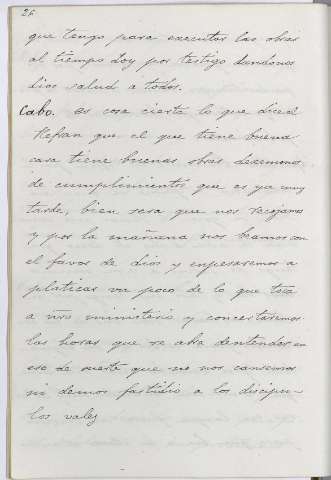 26
que tengo para executar las obras
al tiempo doy por testigo dandonos
dios salud a todos.
Cabo. es cosa cierta lo que dice el
Refran que el que tiene buena
casa tiene buenas obras dexemonos
de cumplimientos que es ya muy
tarde, bien sera que nos recojamos
y por la mañana nos beamos con
el favor de dios y enpesaremos a
platicar un poco de lo que toca
a nro ministerio y concertaremos
las horas que se aha dentender en
eso de suerte que no nos cansemos
ni demos fastidio a los discipu-
los vale